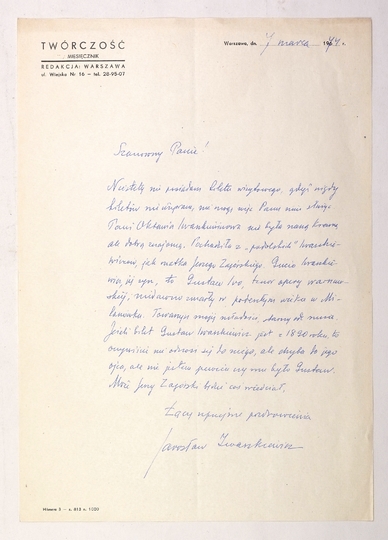 TWÓRCZOŚĆ
MIESIĘCZNIK
REDAKCJA: WARSZAWA
ul. Wiejska Nr 16 — tel. 28-95-07
Warszawa, dn. 7 marca 1974 r.
Szanowny Panie!
Niestety nie posiadam biletu wizytowego, gdyż nigdy
biletów nie używam, nie mogę więc Panu nim służyć.
Pani Oktawia Iwankiewiczowa nie była naszą krewną
ale dobrą znajomą. Pochodziła z „podolskich" Iwaszkie-
wiczów, jak matka Jerzego Zagórskiego. Gucio Iwaszkie-
wicz, jej syn, to Gustaw Ivo, tenor opery warszaw-
skiej, niedawno zmarły w podeszłym wieku w Mi-
lanówku. Towarzysz mojej młodości, starszy ode mnie.
Jeżeli bilet Gustaw Iwaszkiewicz jest z 1890 roku, to
oczywiście nie odnosi się do niego, ale chyba to jego
ojca, ale nie jestem pewien czy mu było Gustaw.
Może Jerzy Zagórski będzie coś wiedział.
Łączę uprzejme pozdrowienia
Jarosław Iwaszkiewicz